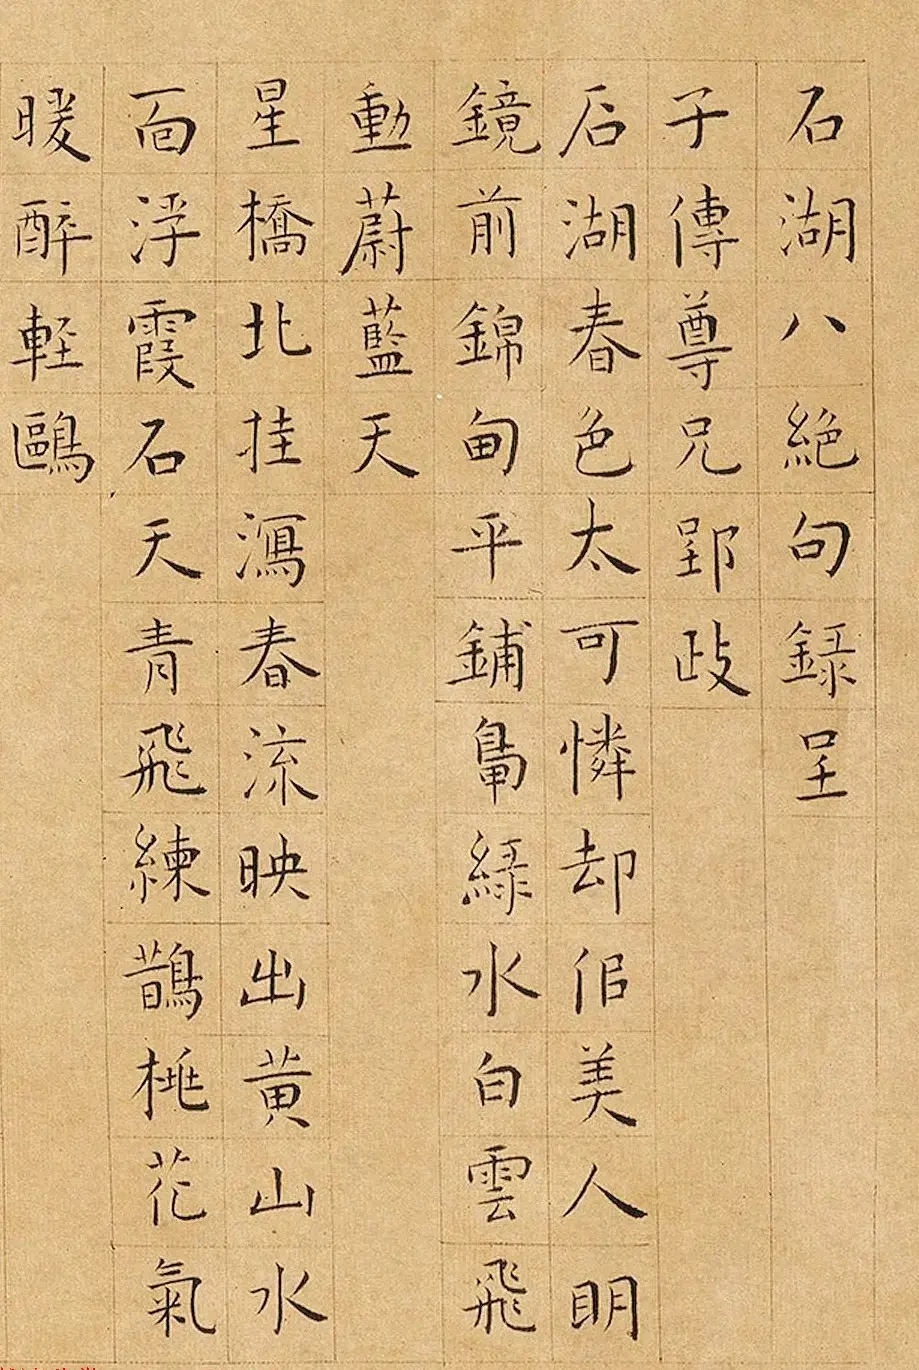 石湖八絕句錄呈
子傳尊兄郢政
石湖春色太可憐却佀美人眀
鏡前錦甸平鋪鳧綠水白雲飛
動蔚藍天
星橋北挂瀉春流映出黄山水
面浮霞石天青飛練鵲桃花氣
暖醉輕鷗